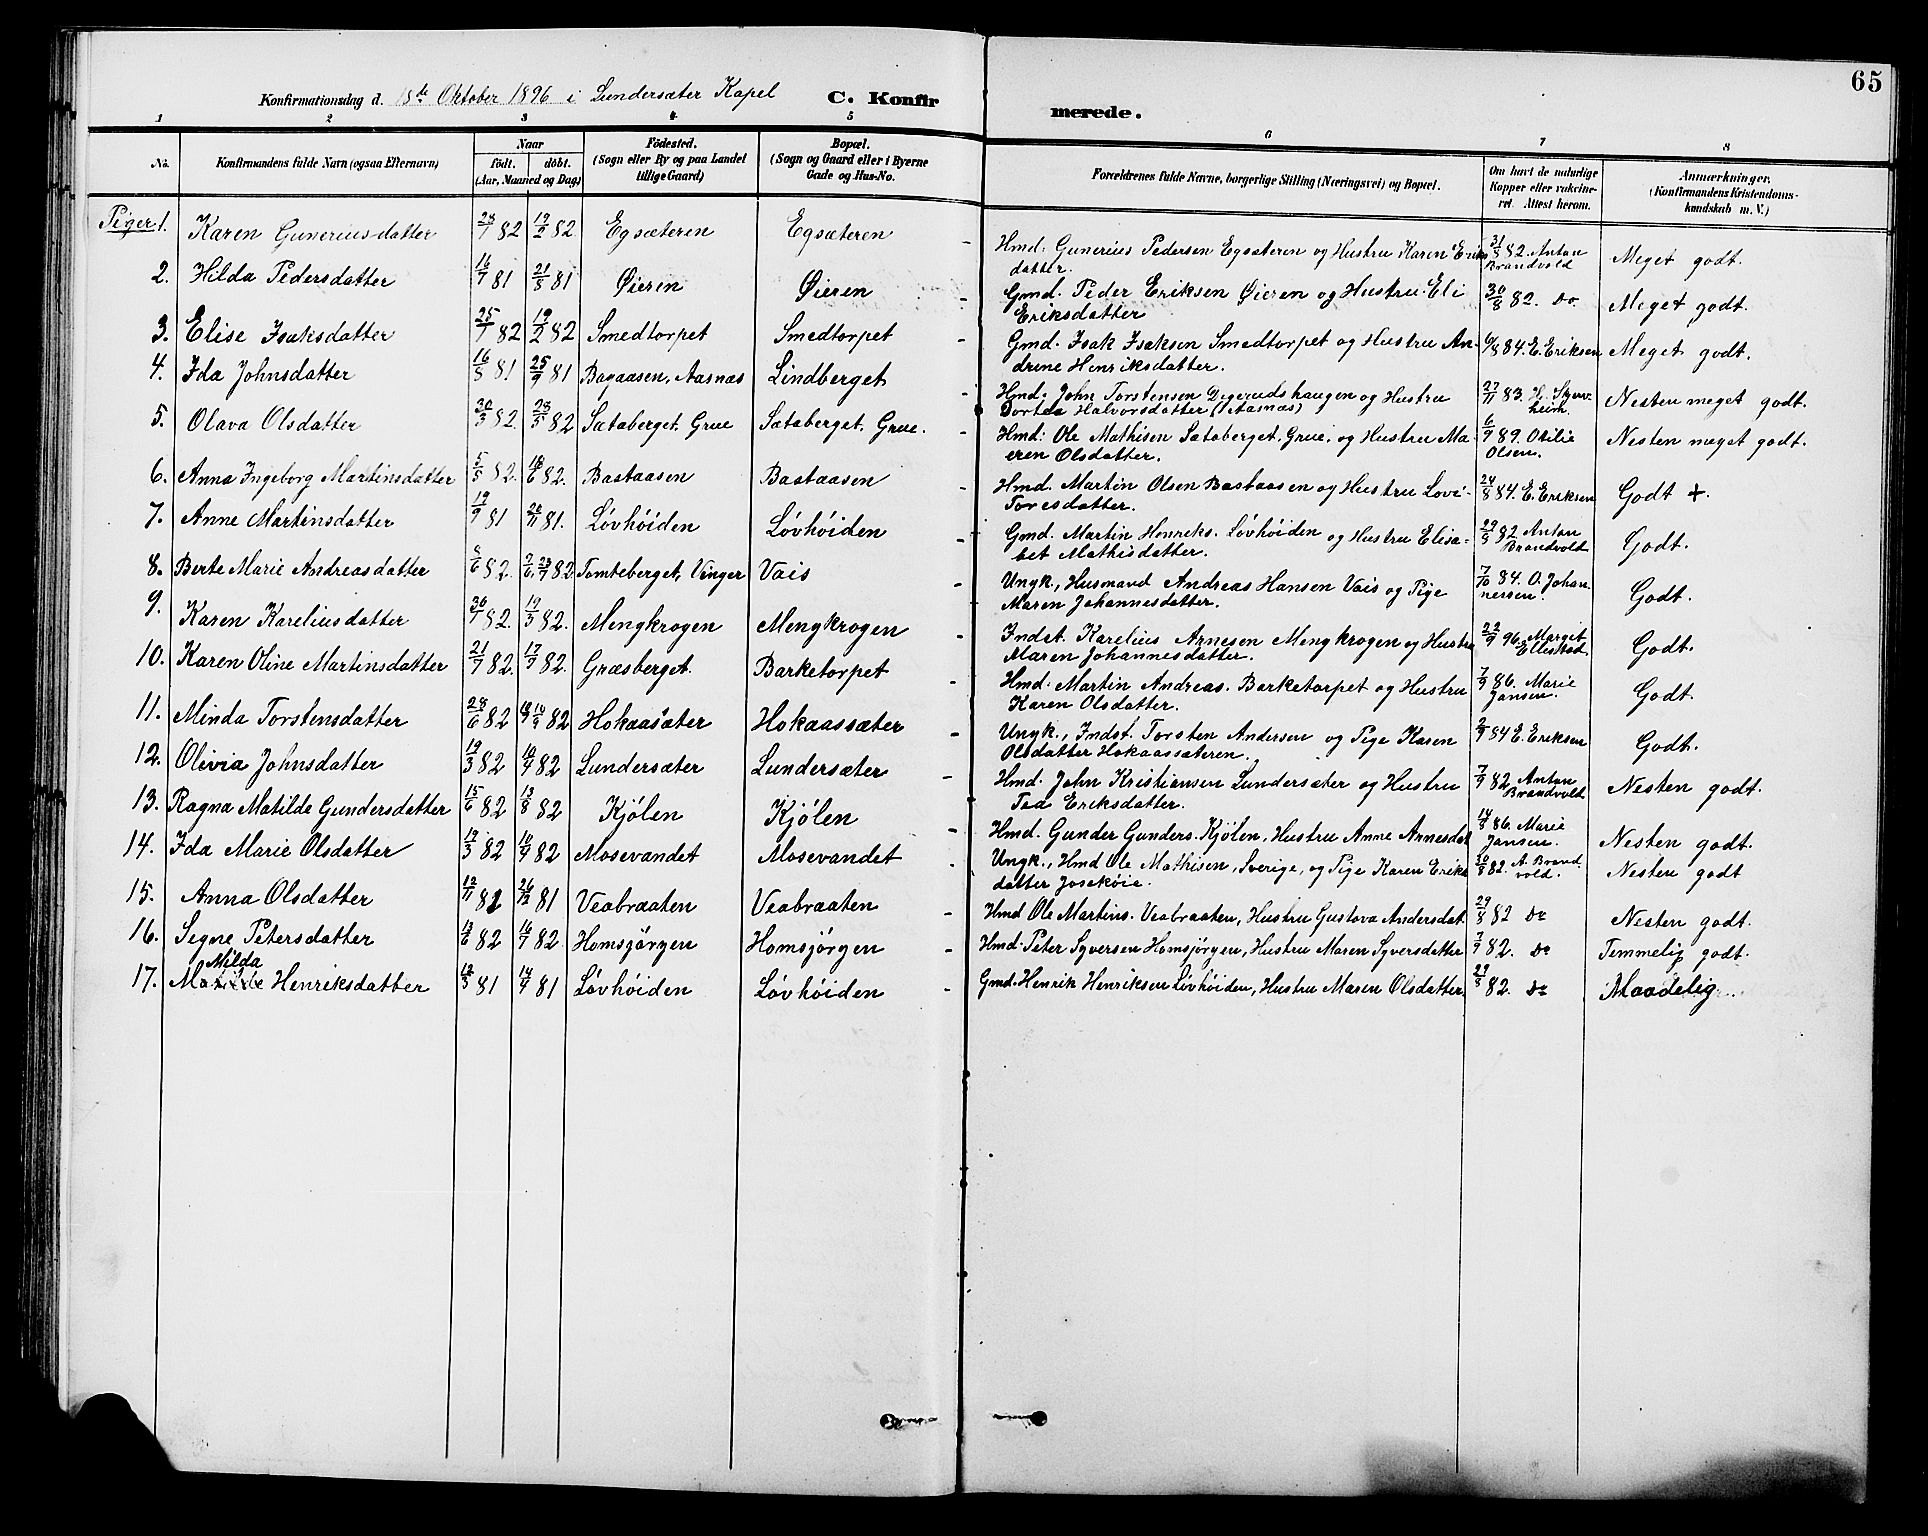 65
Konfirmationsdag d. 18de Oktober 1896 i Lundersæter Kapel C. Konfirmerede.
1 2 3 4 5 6 7 8
No. Konfirmandens fulde Navn (ogsaa Efternavn) Naar født. døbt. (Aar, Maaned og Dag) Födested. (Sogn eller By og paa Landet tillige Gaard) Bopæl. (Sogn og Gaard eller i Byerne Gade og Hus-No. Forældrenes fulde Navne, borgerlige Stilling (Næringsvei) og Bopæl. Om havt de naturlige Kopper eller vakcineret. Attest herom. Anmærkninger. (Konfirmandens Kristendomskundskab m. V.)
Piger 1. Karen Guneriusdatter 28/1 82 19/2 82 Egsæteren Egsæteren - Hmd: Gunerius Pedersen Egsæteren og Hustru Karen Eriksdatter. 31/8 82. Anton Brandvold Meget godt.
2. Hilda Pedersdatter 16/7 81 21/8 81 Øieren Øieren - Gmd. Peder Eriksen Øieren og Hustru Eli Eriksdatter 30/8 82. do. Meget godt.
3. Elise Isaksdatter 25/1 82 19/2 82 Smedtorpet Smedtorpet - Gmd. Isak Isaksen Smedtorpet og Hustru Andrine Henriksdatter. 6/8 84. E. Eriksen Meget godt.
4. Ida Johnsdatter 16/8 81 25/9 81 Bagaasen, Aasnæs Lindberget - Hmd. John Torstensen Digerudshaugen og Hustru Dortea Halvorsdatter (Aasnæs) 27/11 83. H. Nesten meget godt.
5. Olava Olsdatter 30/3 82. 28/5 82 Sætaberget. Grue Sætaberget. Grue. - Hmd: Ole Mathisen Sætaberget, Grue, og Hustru Maeren Olsdatter. 6/9 89. Otilie Olsen. Nesten meget godt.
6. Anna Ingeborg Martinsdatter 5/5 82. 18/6 82. Bastaasen Bastaasen - Hmd. Martin Olsen Bastaasen og Hustru Lovi Toresdatter. 24/8 84. E. Eriksen Godt +.
7. Anne Martinsdatter 19/9 81 20/11 81. Lövhöiden Lövhöiden - Gmd. Martin Henriks. Lövhöiden og Hustru Elisabet Mathisdatter. 29/8 82 Anton Brandvold Godt.
8. Berte Marie Andreasdatter 8/6 82. 2/6, 23/7 82 Tomteberget, Vinger Vais - Ungk., Husmand Andreas Hansen Vais og Pige Maren Johannesdatter. 7/10 84. O. Johannessen. Godt.
9. Karen Kareliusdatter 30/1 82. 19/3 82. Mengkrogen Mengkrogen - Indst. Karelius Arnesen Mengkrogen og Hustru Maren Johannesdatter. 22/9 96. Margit Ellestad Godt.
10. Karen Oline Martinsdatter 21/7 82. 17/9 82. Græsberget. Barketorpet - Hmd. Martin Andreas. Barketorpet og Hustru Karen Olsdatter. 7/9 86. Marie Jansen. Godt.
11. Minda Torstensdatter 28/6 82 10/9 82 Hokaasæter Hokaassæter - Ungk., Indst. Torsten Andersen og Pige Karen Olsdatter Hokaassæteren. 2/9 84 E. Eriksen Godt.
12. Olivia Johnsdatter 19/3 82 10/4 82 Lundersæter Lundersæter - Hmd. John Kristiansen Lundersæter og Hustru Tea Eriksdatter. 7/9 82 Anton Brandvold Nesten godt.
13. Ragna Matilde Gundersdatter 15/6 82 13/8 82 Kjölen Kjölen - Hmd. Gunder Gunders. Kjölen, Hustru Anne Arnesdat 14/8 86. Marie Jansen. Nesten godt.
14. Ida Marie Olsdatter 19/3 82 10/4 82 Mosevandet Mosevandet - Ungk., Hmd Ole Mathisen, Sverige, og Pige Karen Eriksdatter Josekøie. 30/8 82. A. Brandvold. Nesten godt
15. Anna Olsdatter 12/11 81 26/12 81 Veabraaten Veabraaten - Hmd Ole Martins. Veabraaten, Hustru Gustava Andersdat. 29/8 82 Do Nesten godt.
16. Signe Petersdatter 13/6 82 16/7 82 Homsjörgen Homsjörgen - Hmd. Peter Syversen Homsjörgen, Hustru Maren Syversdatter 7/9 82. Do Temmelig godt.
Milda
17. Matilde Henriksdatter 12/3 81 14/4 81 Lövhöiden Lövhöiden - Gmd. Henrik Henriksen Lövhöiden, Hustru Maren Olsdatter. 29/8 82. Do Maadelig.